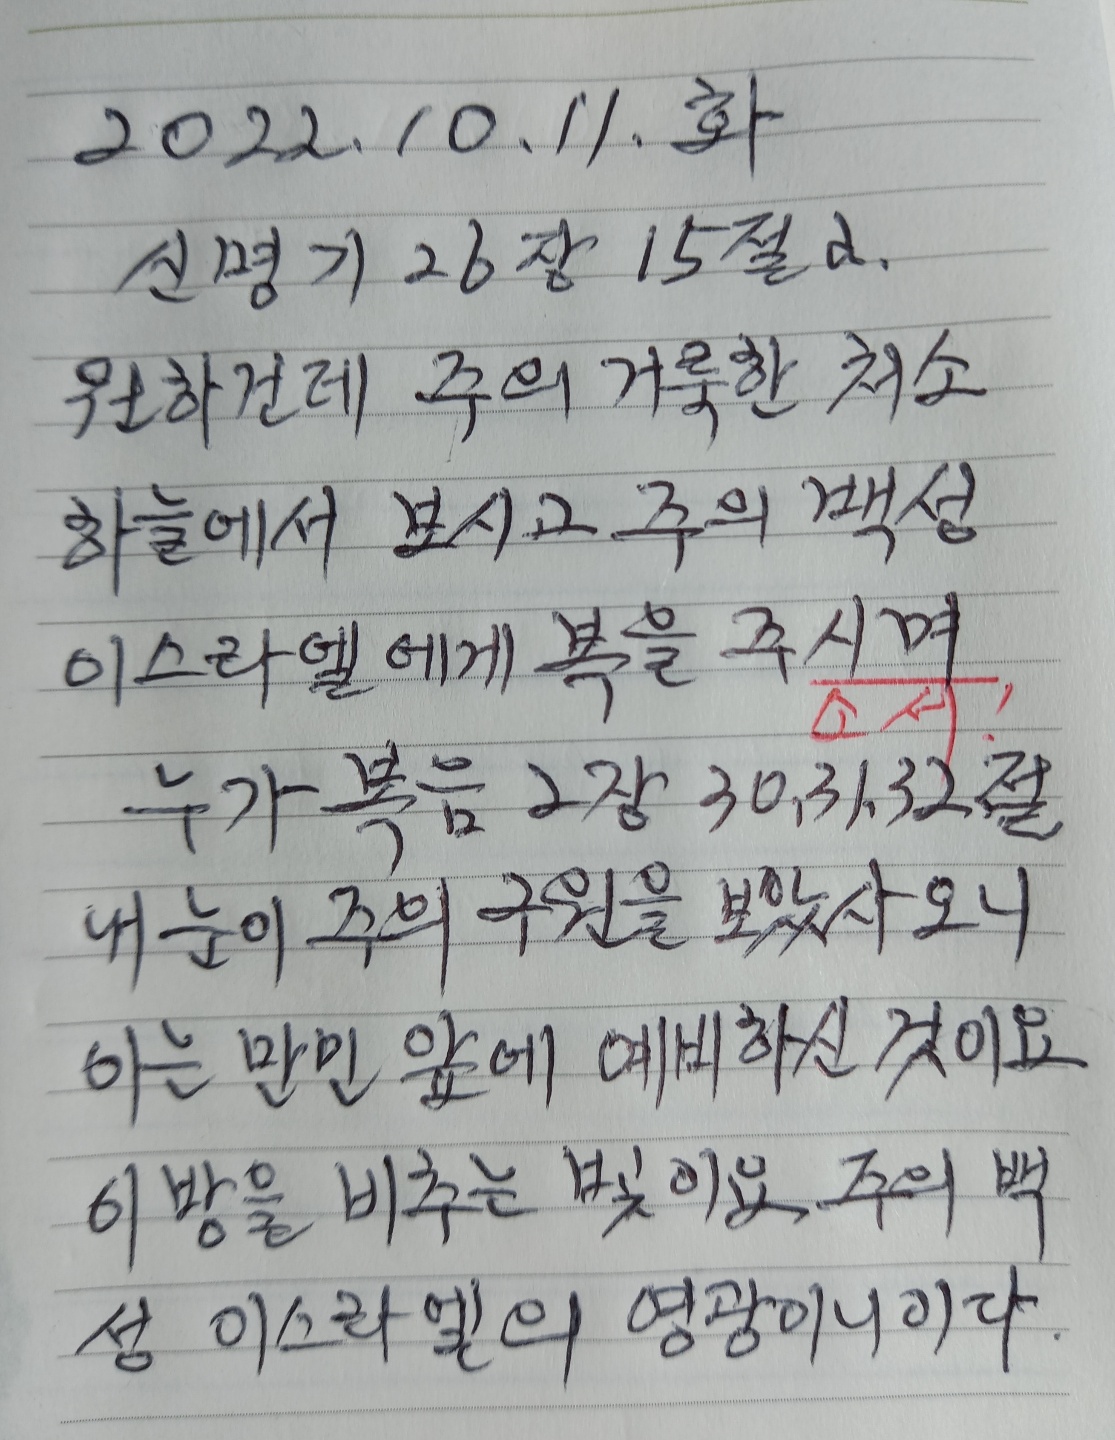 2022.10.11.화
신명기 26장 15절 a.
원하건데 주의 거룩한 처소
하늘에서 보시고 주의 백성
이스라엘에게 복을 주시며
소서!
누가복음 2장 30,31,32절
내 눈이 주의 구원을 보았사오니
이는 만민 앞에 예비하신 것이요
이방을 비추는 빛이요 주의 백
성 이스라엘의 영광이니이다.